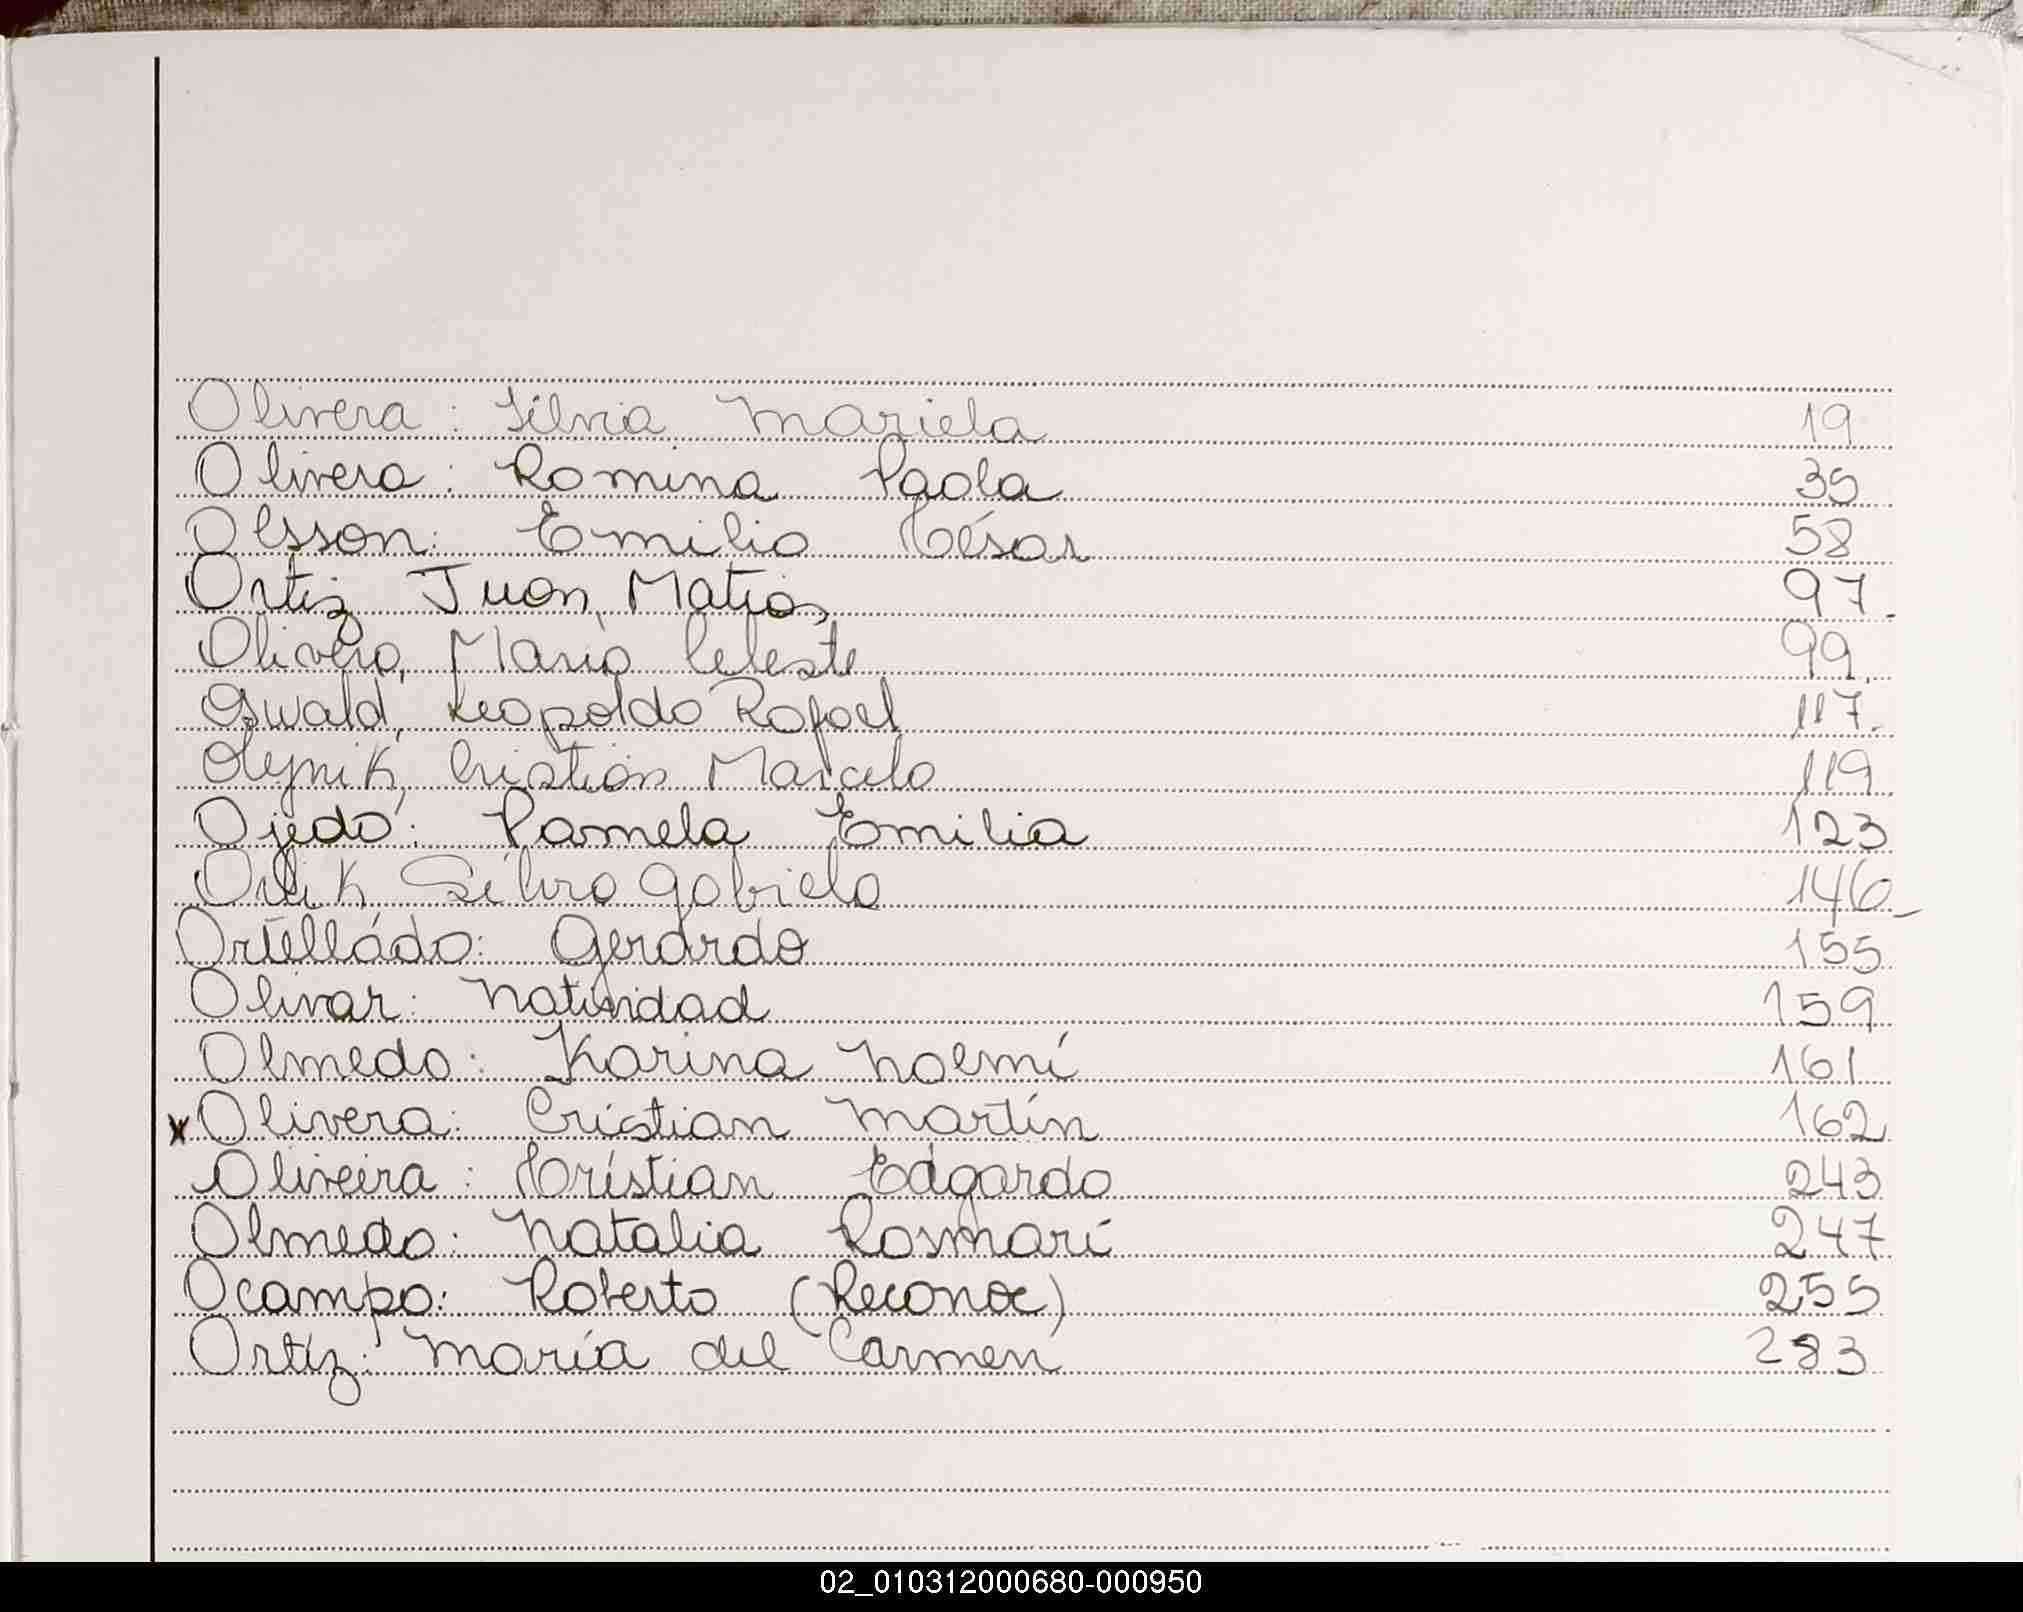 Olivera: Silvia Mariela 19
Olivera: Romina Paola 35
Olsson: Emilio César 58
Ortiz Juan, Matias, 97.
Olivera, Maria Celeste 99
Oswald, Leopoldo Rafael 117.
Olejnik, Cristian Marcelo 119
Ojeda: Pamela Emilia 123
Orlik Silvia Gabriela 146_
Ortelládo: Gerardo 155
Olivar: Natividad 159
Olmedo: Karina Noemí 161
x Olivera: Cristian Martín 162
Oliveira: Cristian Edgardo 243
Olmedo: Natalia Rosmarí 247
Ocampo: Roberto (Reconoc) 255
Ortíz: María del Carmen 283
02_010312000680-000950